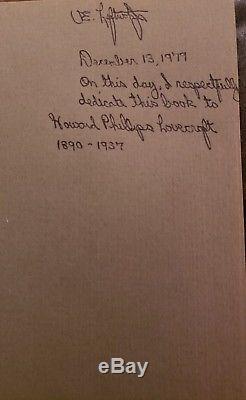 December 13, 1977
On this day, I respectfully
dedicate this book to
Howard Phillips Lovecraft
1890-1937
ebay